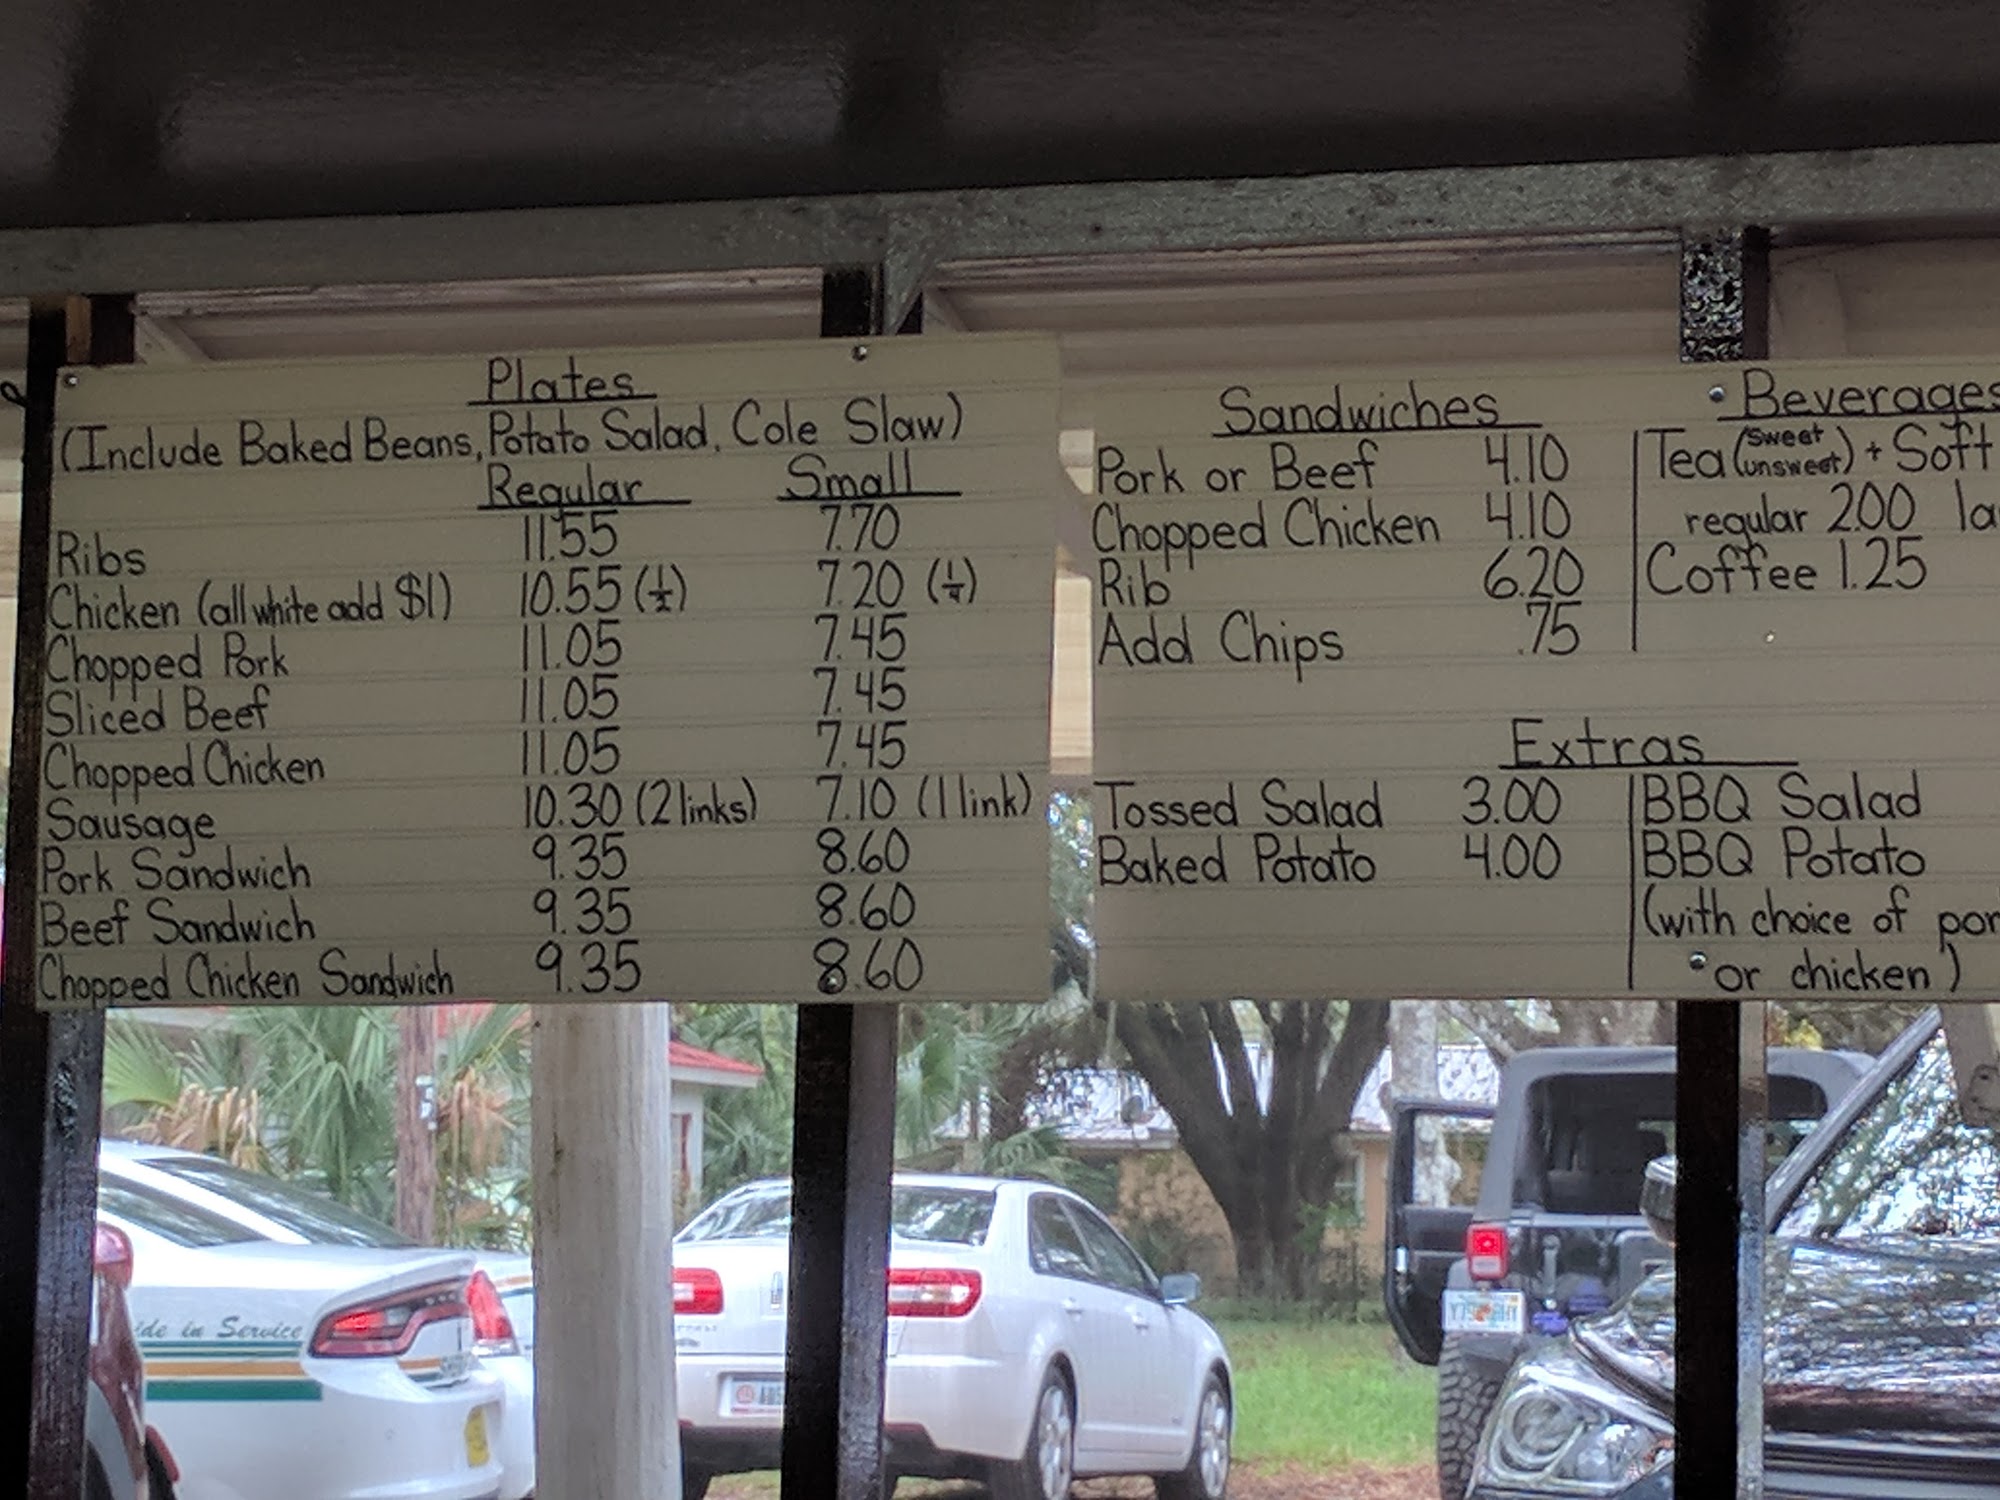 Plates
(Include Baked Beans, Potato Salad, Cole Slaw)
Regular Small
Ribs 11.55 7.70
Chicken (all white add $1) 10.55 (1/2) 7.20 (1/4)
Chopped Pork 11.05 7.45
Sliced Beef 11.05 7.45
Chopped Chicken 11.05 7.45
Sausage 10.30 (2 links) 7.10 (1 link)
Pork Sandwich 9.35 8.60
Beef Sandwich 9.35 8.60
Chopped Chicken Sandwich 9.35 8.60
Sandwiches
Pork or Beef 4.10
Chopped Chicken 4.10
Rib 6.20
Add Chips .75
Beverages
Tea (sweet unsweet) + Soft
regular 2.00
Coffee 1.25
Extras
Tossed Salad 3.00
Baked Potato 4.00
BBQ Salad
BBQ Potato
(with choice of
or chicken)
in Service